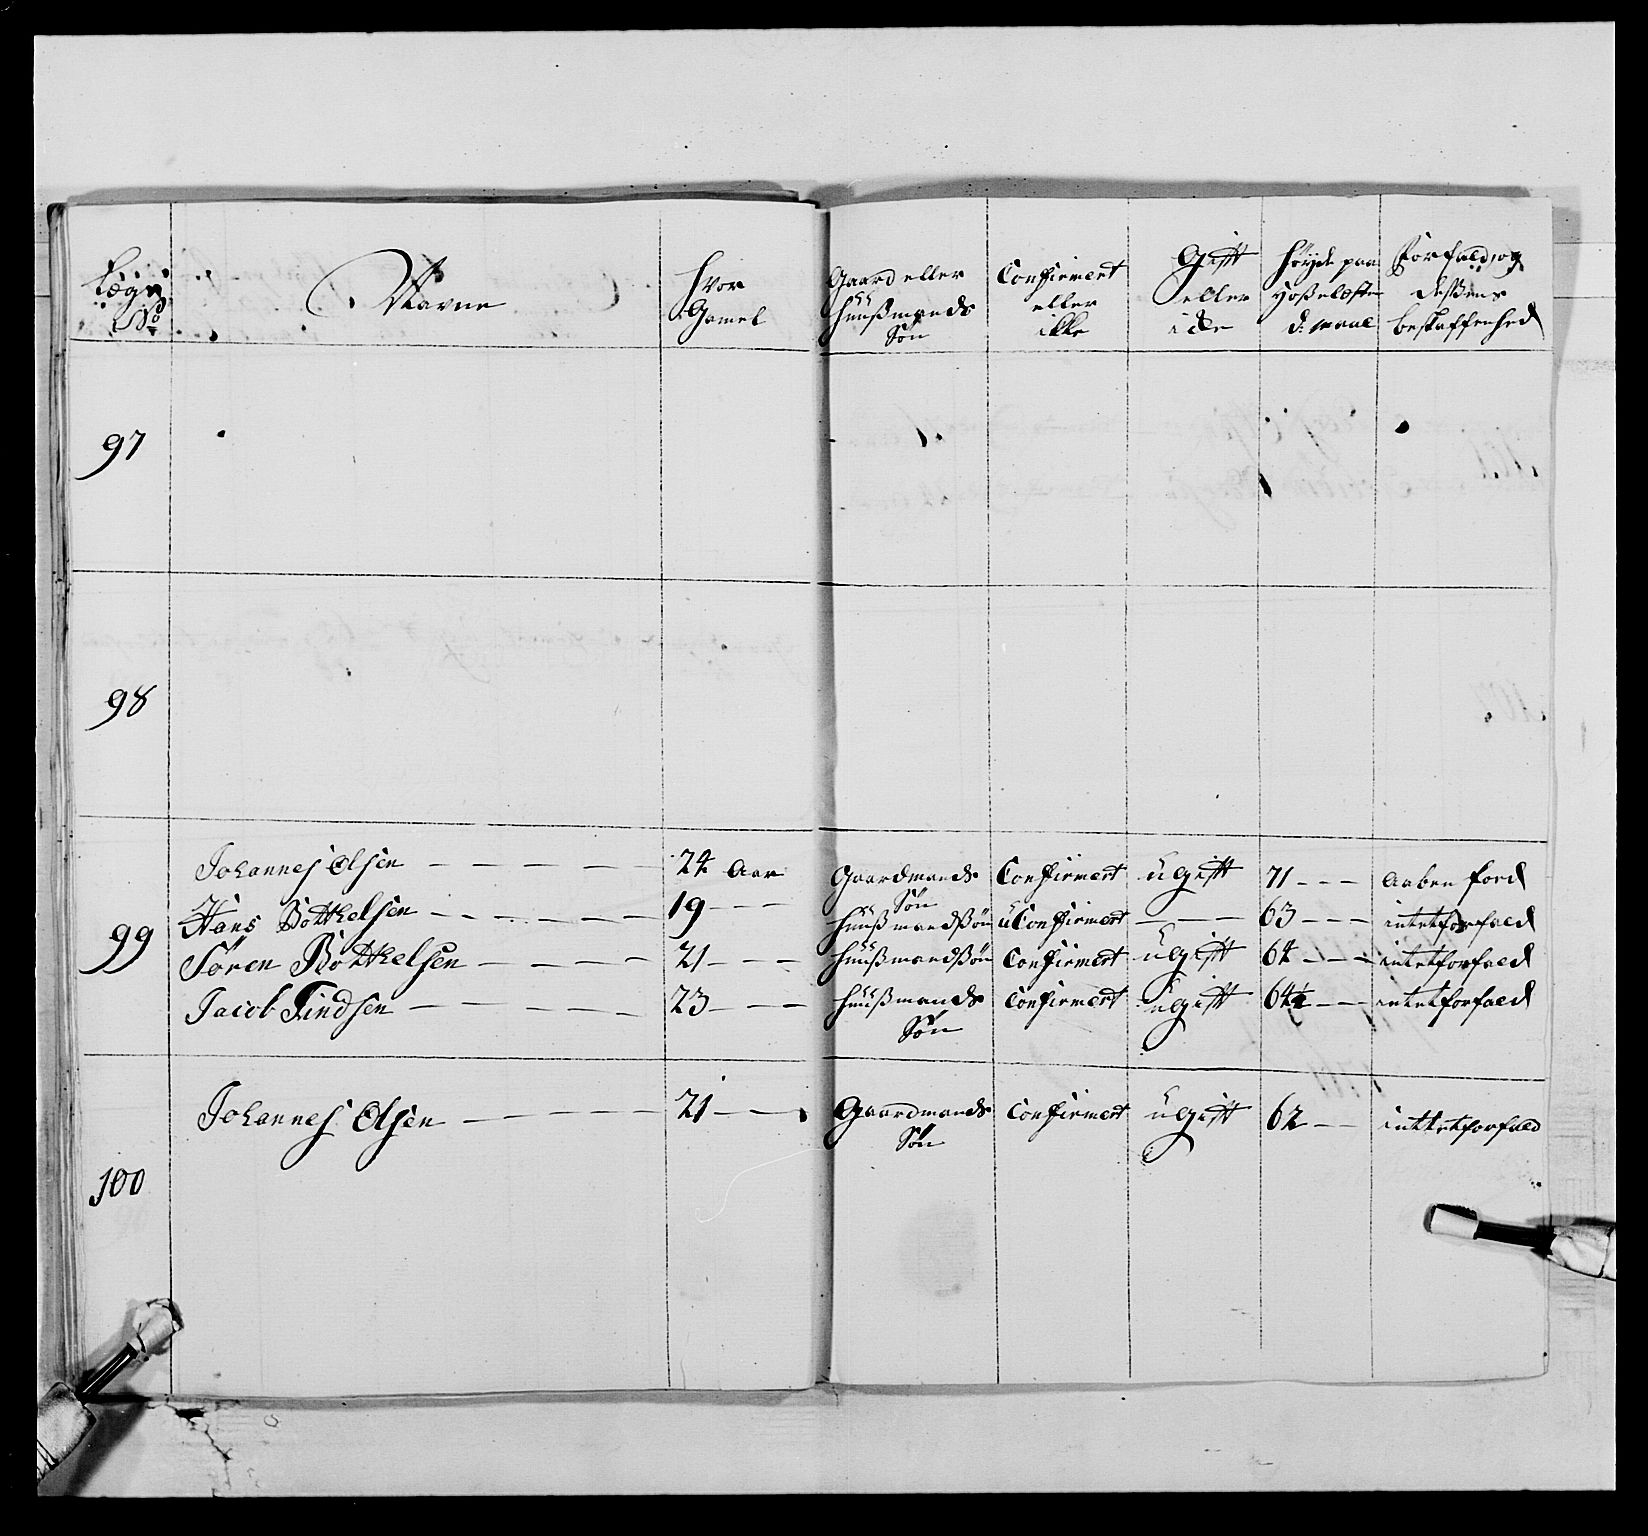 Lægs No
Navne
Hvor Gamel
Gaard eller Huusmands Søn
Confirmert eller ikke
Gift eller icke
Høyde paa Hosselæster d: maal
Forfald, og dessens beskaffenhed
97
98
99
Johannes Olsen — — — — — 24 Aar Gaardmands Søn Confirmert ugift 71 - - - Aaben ford
Hans Bottelsen — — — — — 19 - - - Huusmandssøn uConfirmert — — — 63 - - - intet forfald
Søren Bottelsen — — — — 21 - - - Huusmandssøn Confirmert ugift 64 - - - intet forfald
Jacob Findsen — — — — — 23 - - - Huusmands Søn Confirmert ugift 64½ — — intet forfald
100
Johannes Olsen — — — — — 21 - - - Gaardmands Søn Confirmert ugift 62 — — inttet forfald